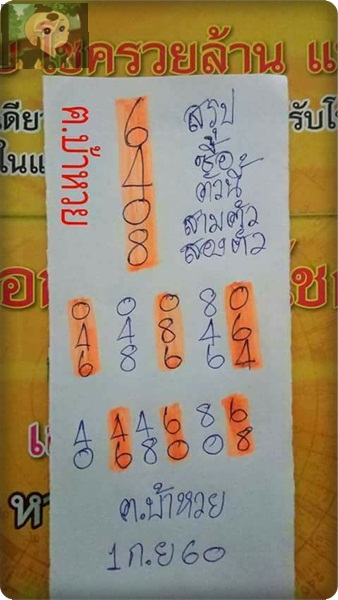 โชครวยล้าน
ฅ.บ้าหวย
6
4
0
8
สรุป
ซื้อ
ตัวนี้
สามตัว
สองตัว
0 0 0 8 0
4 4 8 4 6
6 8 6 6 4
4 4 4 6 8 6
0 6 8 0 0 8
ฅ.บ้าหวย
1 ก.ย 60